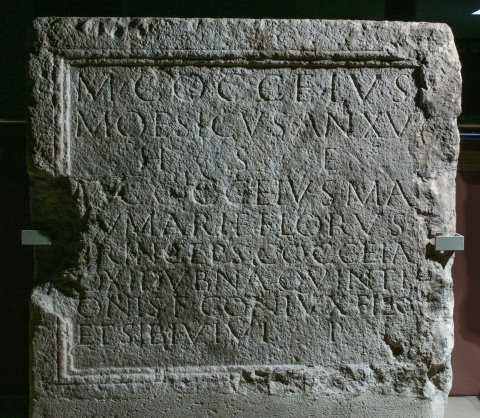 M COCCEIVS
MOESICVS AN XV
H S E
M COCCEIVS MA
VMARI F FLORVS
PRINCEPS COCCEIA
DVIDVBNA QVINTI
ONIS F CONIVX FIL
ET SIBI VIVI P